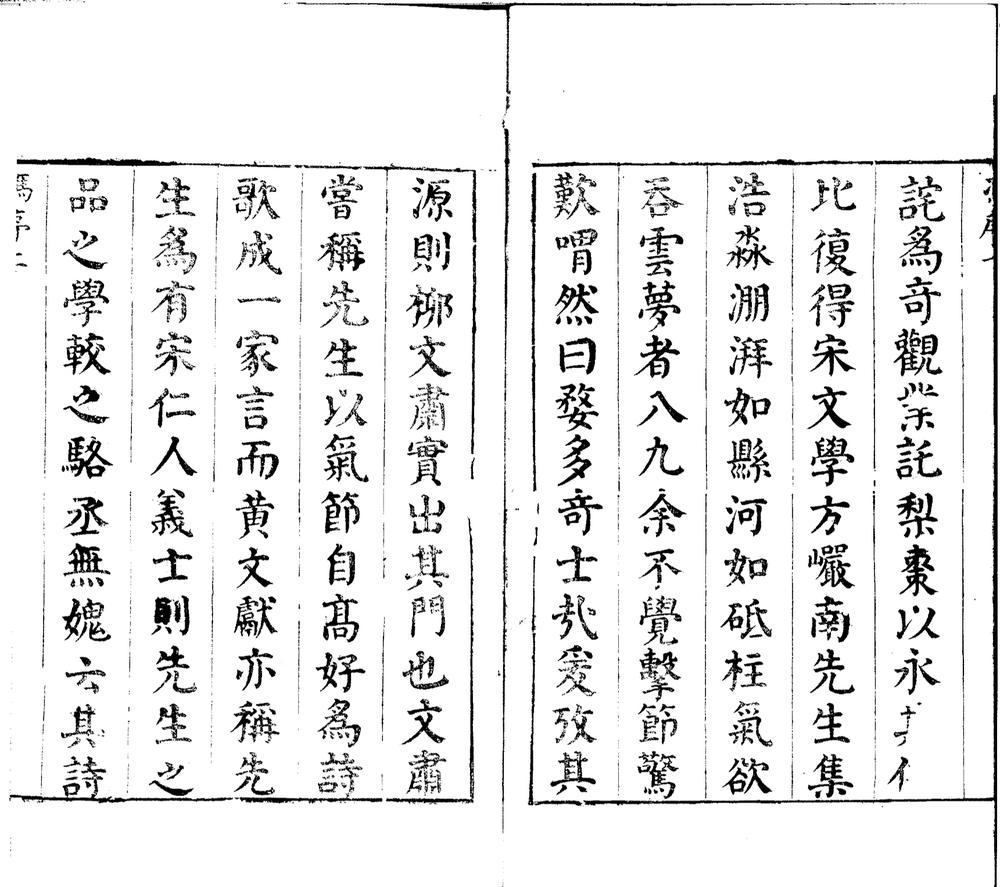 詫爲奇觀業託梨棗以永其傳
比復得宋文學方巖南先生集
浩淼漰湃如縣河如砥柱氣欲
吞雲夢者八九余不覺擊節驚
歎喟然曰婺多奇士哉爰攷其
源則桞文肅實出其門也文肅
嘗稱先生以氣節自髙好爲詩
歌成一家言而黄文獻亦稱先
生爲有宋仁人義士則先生之
品之學較之駱丞無媿云其詩